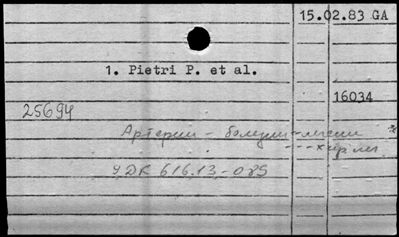 15.02.83 GA
1. Pietri P. et al.
16034
25694
Артерии - болезни - лечен *
--- хир леч
УДК 616.13-085